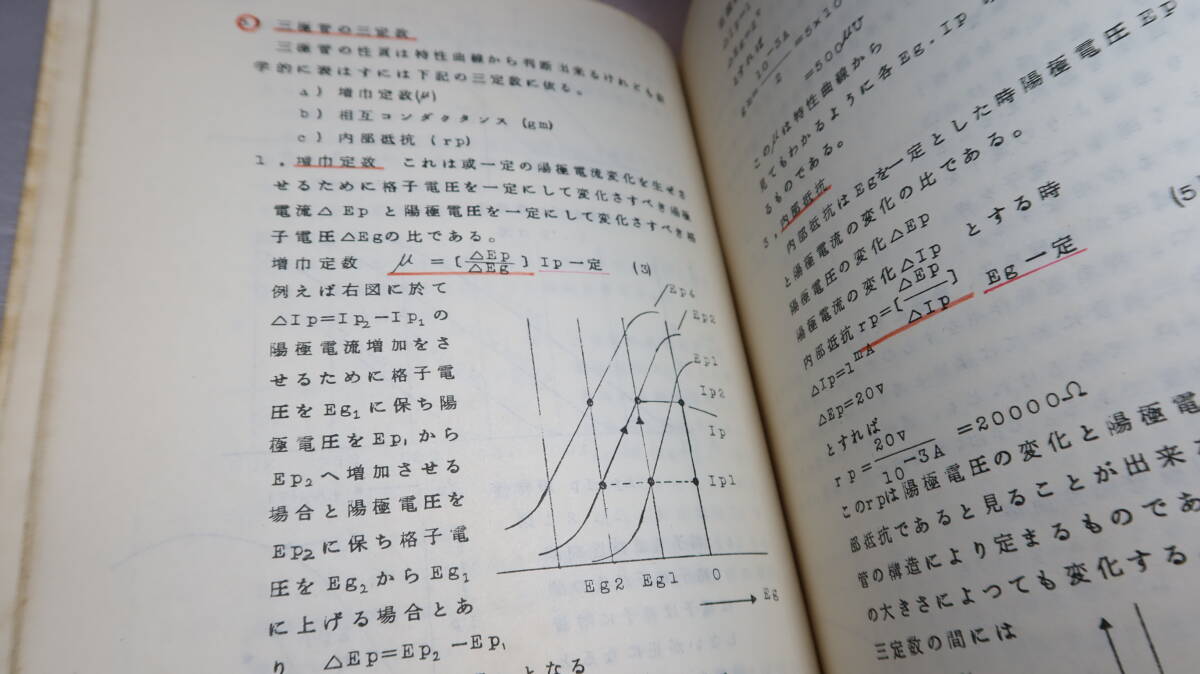 三極管の三定数
三極管の性質は特性曲線から判断出来るけれども数
学的に表はすには下記の三定数に依る。
a) 増巾定数(μ)
b) 相互コンダクタンス (gm)
c) 内部抵抗 (rp)
1. 増巾定数 これは或一定の陽極電流変化を生ぜさ
せるために格子電圧を一定にして変化さすべき陽極
電流△Epと陽極電圧を一定にして変化さすべき格
子電圧△Egの比である。
増巾定数 μ=[△Ep/△Eg] Ip一定 (3)
例えば右図に於て
△Ip=Ip₂-Ip₁の
陽極電流増加をさ
せるために格子電
圧をEg₁に保ち陽
極電圧をEp₁から
Ep₂へ増加させる
場合と陽極電圧を
Ep₂に保ち格子電
圧をEg₂からEg₁
に上げる場合とあ
り △Ep=Ep₂-Ep₁
となる
Ep2
Ep1
Ip2
Ip
Ip1
Eg2 Eg1 0
Eg
10⁻³A
2
=500μ℧
このμは特性曲線から
見てもわかるように各Eg.Ip
るものである。
3.内部抵抗
内部抵抗はEgを一定とした時陽極電圧Ep
と陽極電流の変化の比である。
陽極電圧の変化△Ep
陽極電流の変化△Ip とする時
内部抵抗rp=[△Ep/△Ip] Eg一定 (5)
△Ip=1mA
△Ep=20v
とすれば
rp=20v/10⁻³A=20000Ω
このrpは陽極電圧の変化と陽極電
部抵抗であると見ることが出来
管の構造により定まるものであ
の大きさによっても変化する
三定数の間には